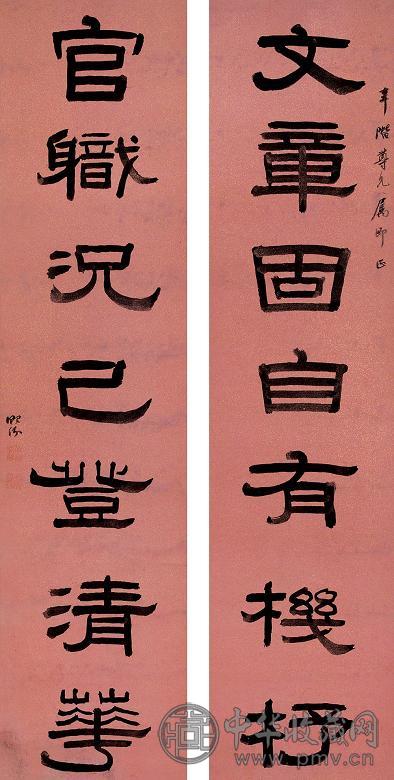 階尊兄属即正
文章固自有機杼
官職況已登清華
中华收藏网
www.pmv.cn